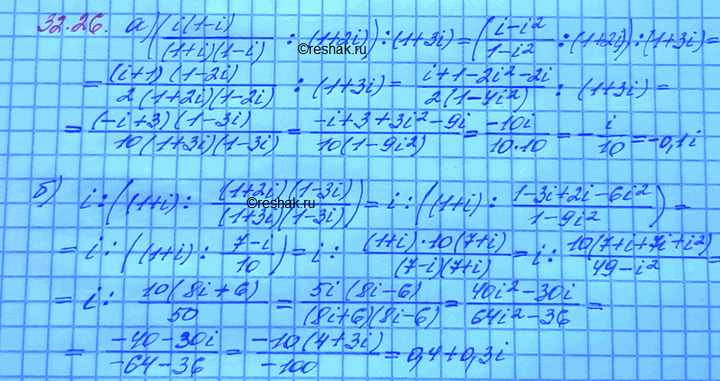 32.26. а) ((i(1-i))/((1+i)(1-i)) : (1+2i)) : (1+3i) = ((i-i²)/(1-i²) : (1+2i)) : (1+3i) =
= ((i+1)(1-2i))/(2(1+2i)(1-2i)) : (1+3i) = (i+1-2i²-2i)/(2(1-4i²)) : (1+3i) =
= ((-i+3)(1-3i))/(10(1+3i)(1-3i)) = (-i+3+3i²-9i)/(10(1-9i²)) = (-10i)/(10·10) = -i/10 = -0,1i
б) i : ((1+i) : ((1+2i)(1-3i))/((1+3i)(1-3i))) = i : ((1+i) : (1-3i+2i-6i²)/(1-9i²)) =
= i : ((1+i) : (7-i)/10) = i : ((1+i)·10(7+i))/((7-i)(7+i)) = i : (10(7+i+7i+i²))/(49-i²) =
= i : (10(8i+6))/50 = (5i(8i-6))/((8i+6)(8i-6)) = (40i²-30i)/(64i²-36) =
= (-40-30i)/(-64-36) = (-10(4+3i))/(-100) = 0,4+0,3i
©reshak.ru
©reshak.ru